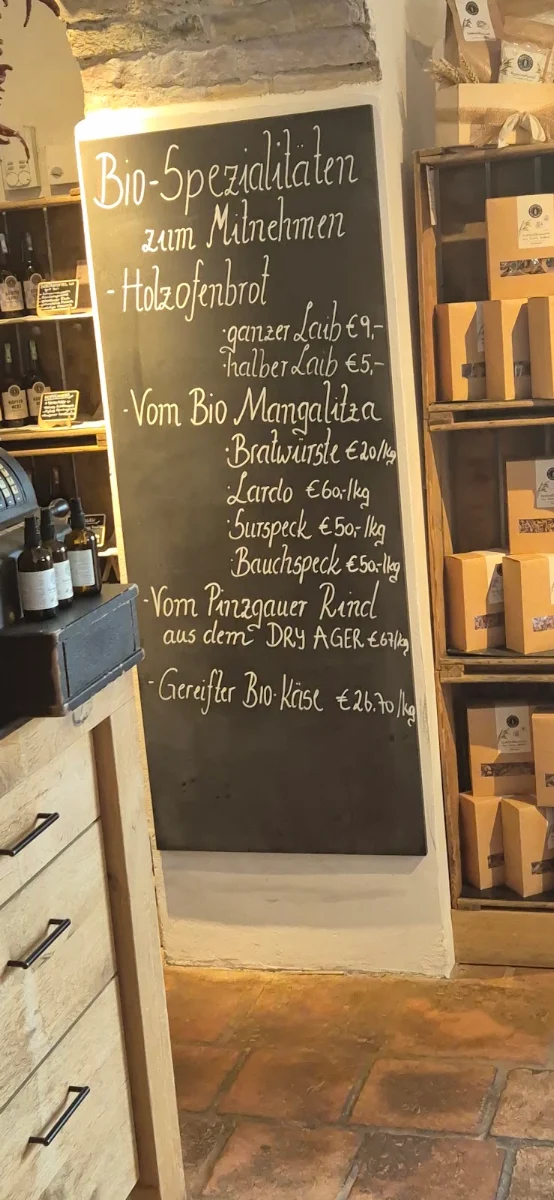 Bio-Spezialitäten
zum Mitnehmen
- Holzofenbrot
·ganzer Laib €9,-
·halber Laib €5,-
·Vom Bio Mangalitza
·Bratwürste €20/kg
·Lardo €60,-/kg
·Surspeck €50,-/kg
·Bauchspeck €50,-/kg
-Vom Pinzgauer Rind
aus dem DRY AGER €67/kg
-Gereifter Bio-Käse €26.70/kg